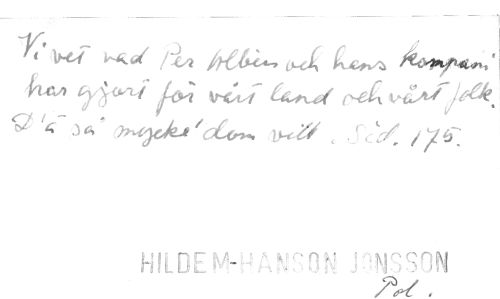 Vi vet vad Per Albin och hans kompani
har gjort för vårt land och vårt folk.
D'ä så mycke' dom vill. Sid. 175.
HILDEM-HANSON JONSSON
Pol.